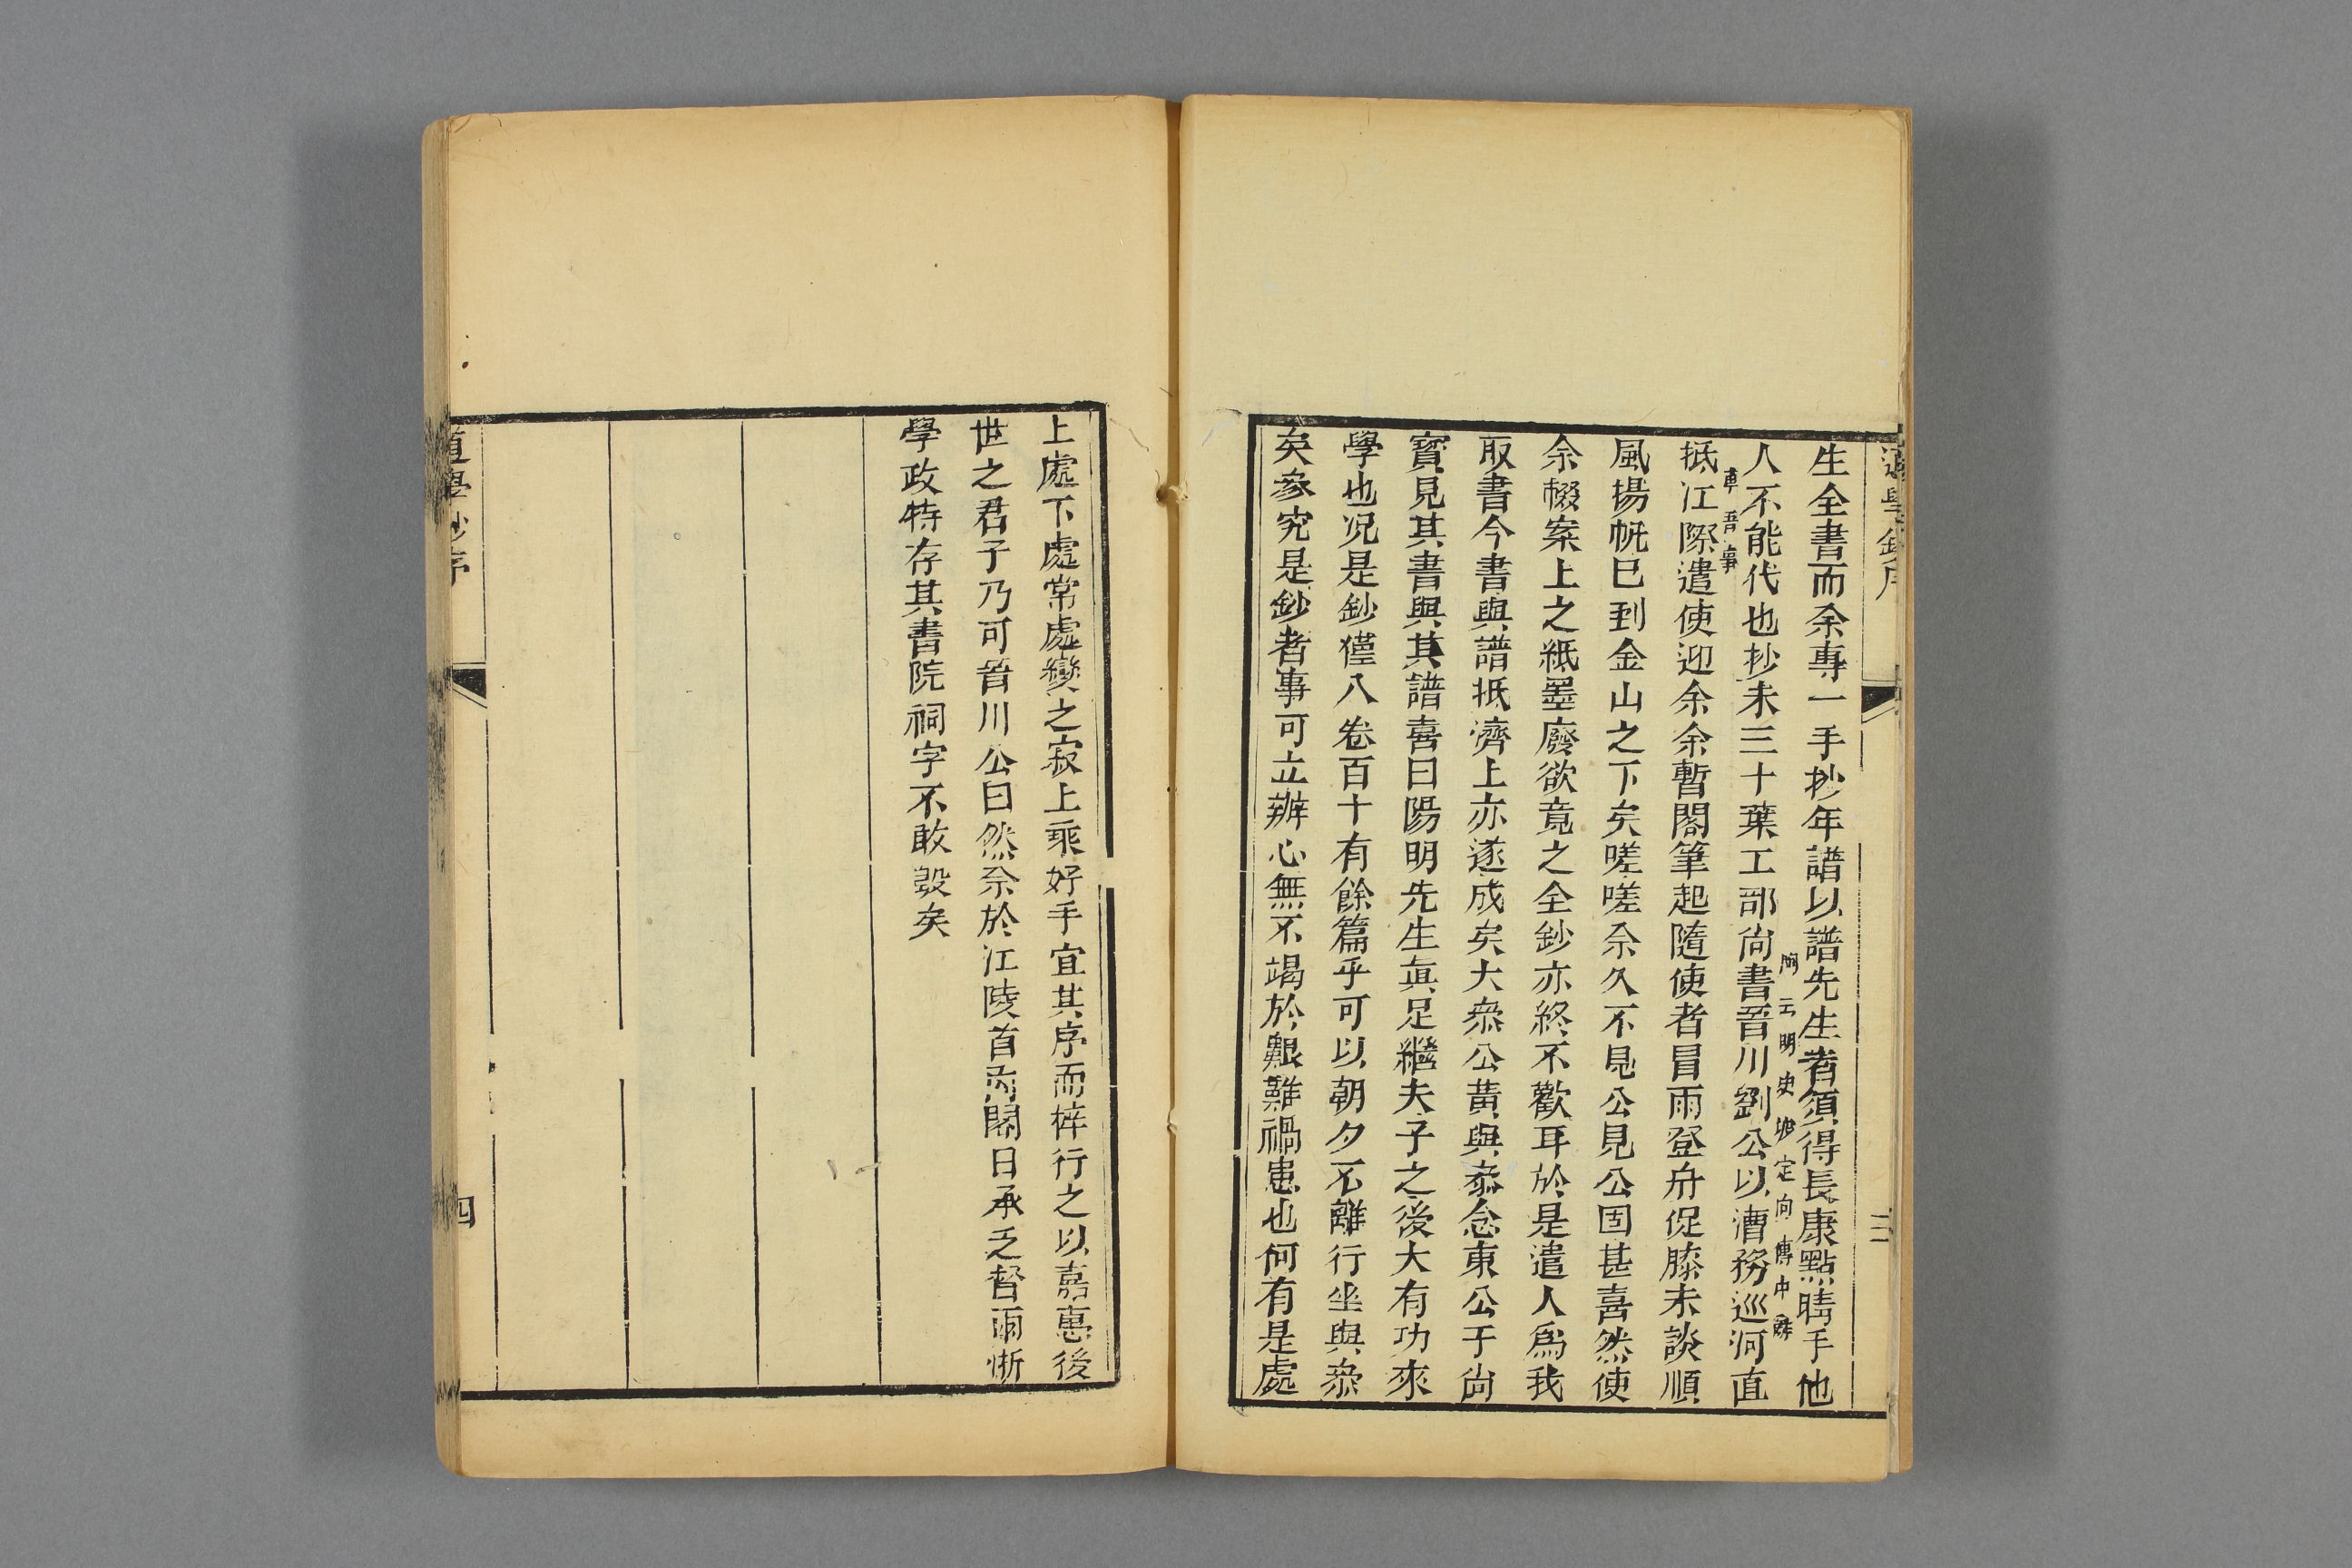 道學鈔序
三
生全書而余專一手抄年譜以譜先生者須得長康點睛手他
人不能代也抄未三十葉工部尚書晉川劉公以漕務巡河直
抵江際遣使迎余余暫閣筆起隨使者冒雨登舟促膝未談順
風揚帆已到金山之下矣嗟嗟余久不見公見公固甚喜然使
余輟案上之紙墨廢欲竟之全鈔亦終不歡耳於是遣人為我
取書今書與譜抵濟上亦遂成矣大叅公黃與叅念東公于尚
寶見其書與其譜喜曰陽明先生真足繼夫子之後大有功來
學也况是鈔僅八卷百十有餘篇乎可以朝夕不離行坐與叅
矣叅究是鈔者事可立辦心無不竭於艱難禍患也何有是處
上處下處常處變之寂上乘好手宜其序而梓行之以嘉惠後
世之君子乃可晉川公曰然余於江陵首內閣日承乏督兩浙
學政特存其書院祠宇不敢毀矣
道學鈔序
四